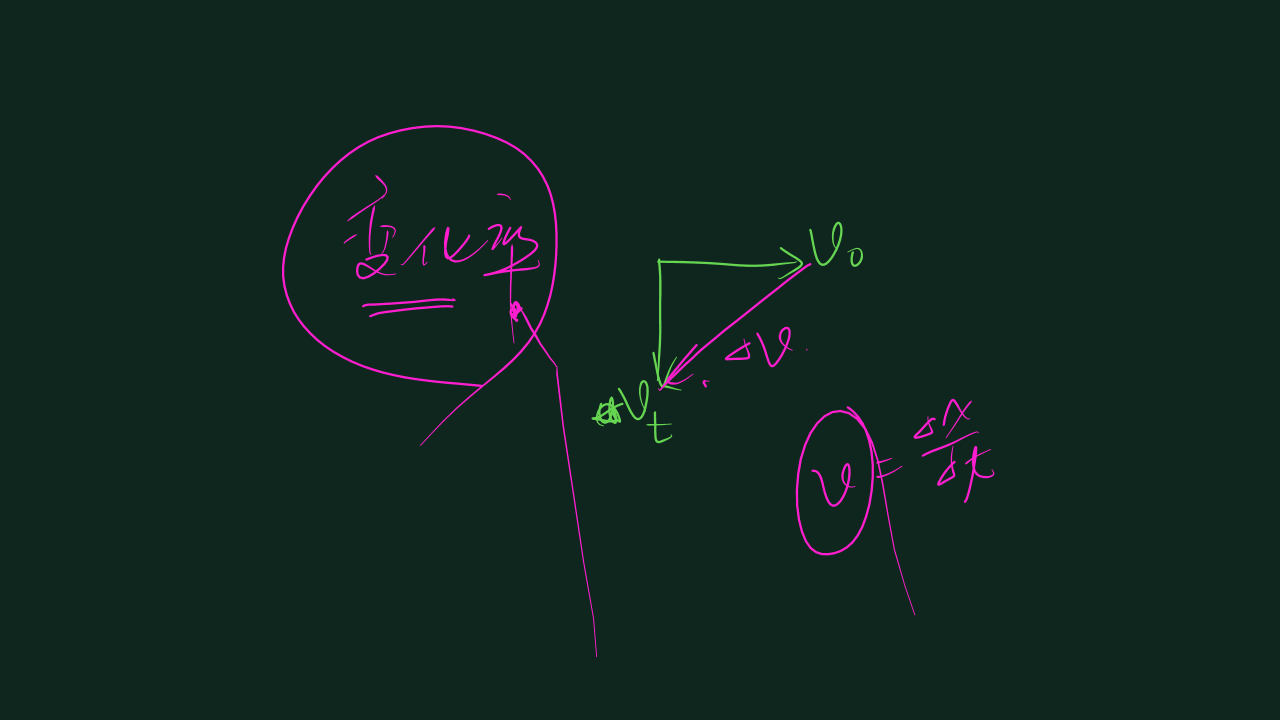 变化率
v₀
Δv
v_t
v = Δx/Δt